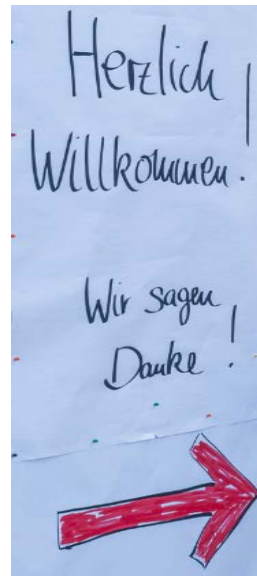 Herzlich
Willkommen!
Wir sagen
Danke!